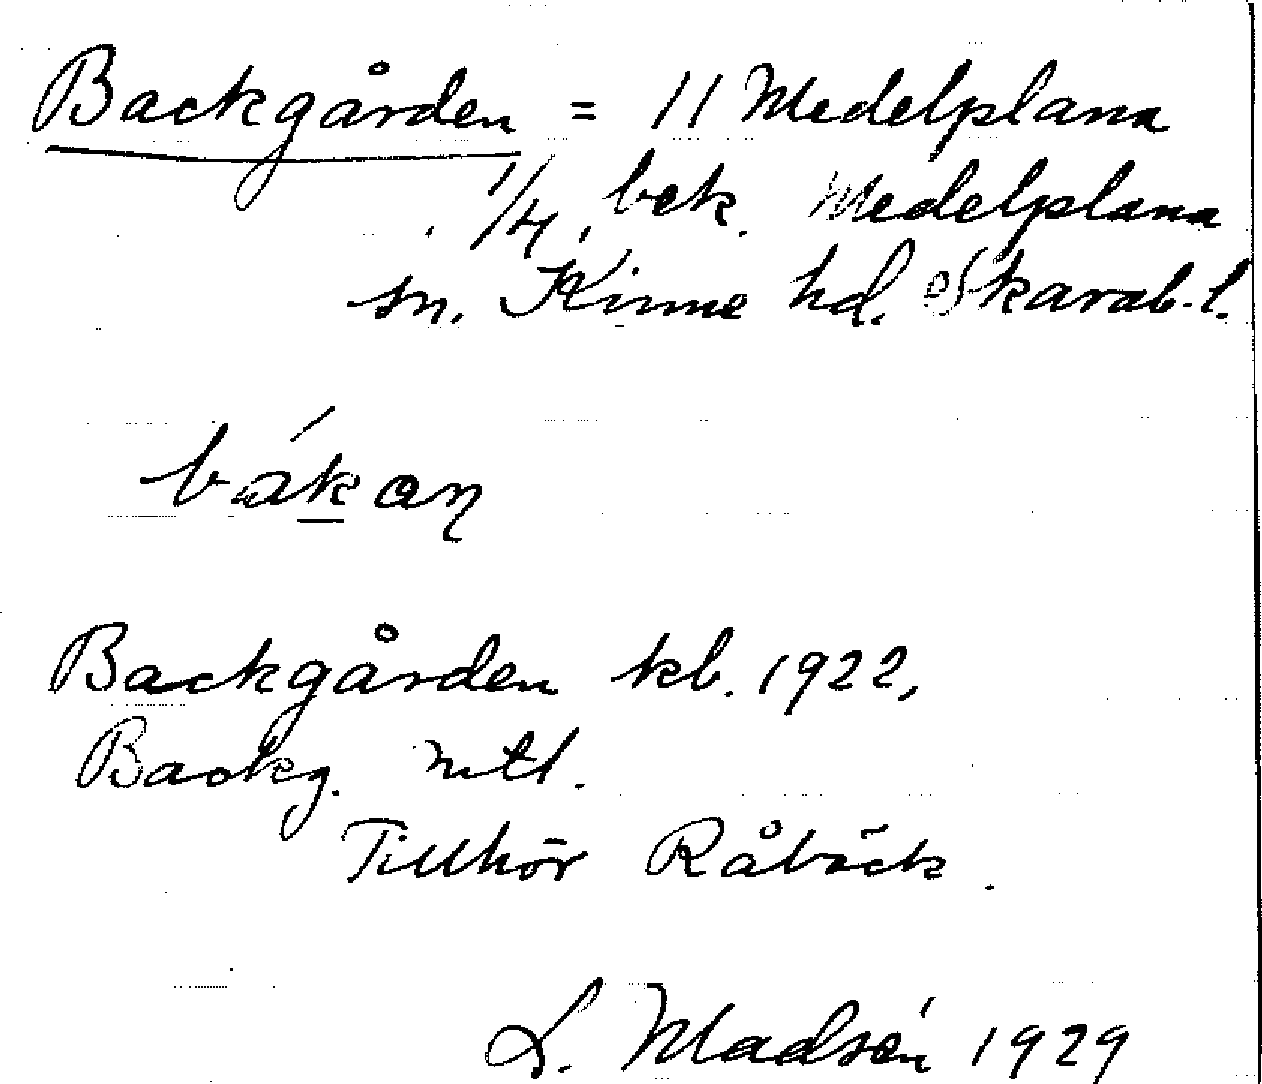 Backgården = 11 Medelplana
1/4, bek. Medelplana
sn. Kinne hd. Skarab. l.
Backgården kb. 1922,
Backg. mtl.
Tillhör Råbäck.
L. Madsén 1929